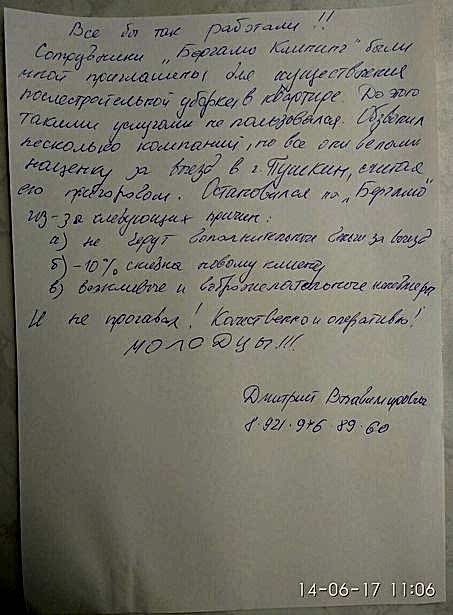 Все бы так работали!!
Сотрудники „Бергамо Клининг" были
мной приглашены для осуществления
послестроительной уборки в квартире. До этого
такими услугами не пользовался. Обзвонил
несколько компаний, но все они делали
наценку за выезд в г. Пушкин, считая
его пригородом. Остановился на „Бергамо"
из-за следующих причин:
а) не берут дополнительных за выезд
б) -10% скидка новому клиенту
в) вежливые и доброжелательные менеджера
И не прогадал! Качественно и оперативно!
МОЛОДЦЫ!!!
Дмитрий Владимирович
8.921.976.89.60
14-06-17 11:06